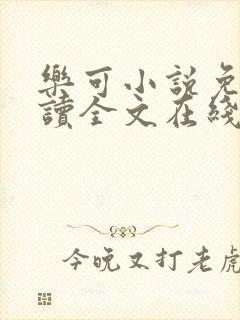 樂可小說免
讀全文在綫
今晚又打老虎